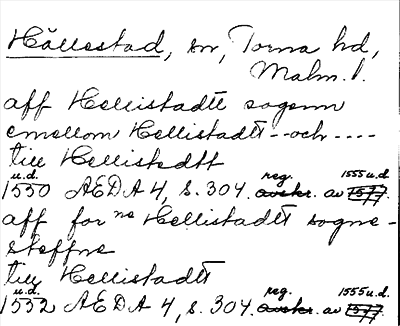 Hällestad, sn, Torna hd,
Malm. l.
aff Hellistadtt sogenn
emellom Hellistadtt--och----
till Hellistedtt
u.d. reg. 1555 u.d.
1550 AEDA 4, s. 304. avskr. av 1577.
aff for ne Hellistadtt sogne-
steffne
till Hellistadtt
u.d. reg. 1555 u.d.
1552 AEDA 4, s. 304. avskr. av 1577.